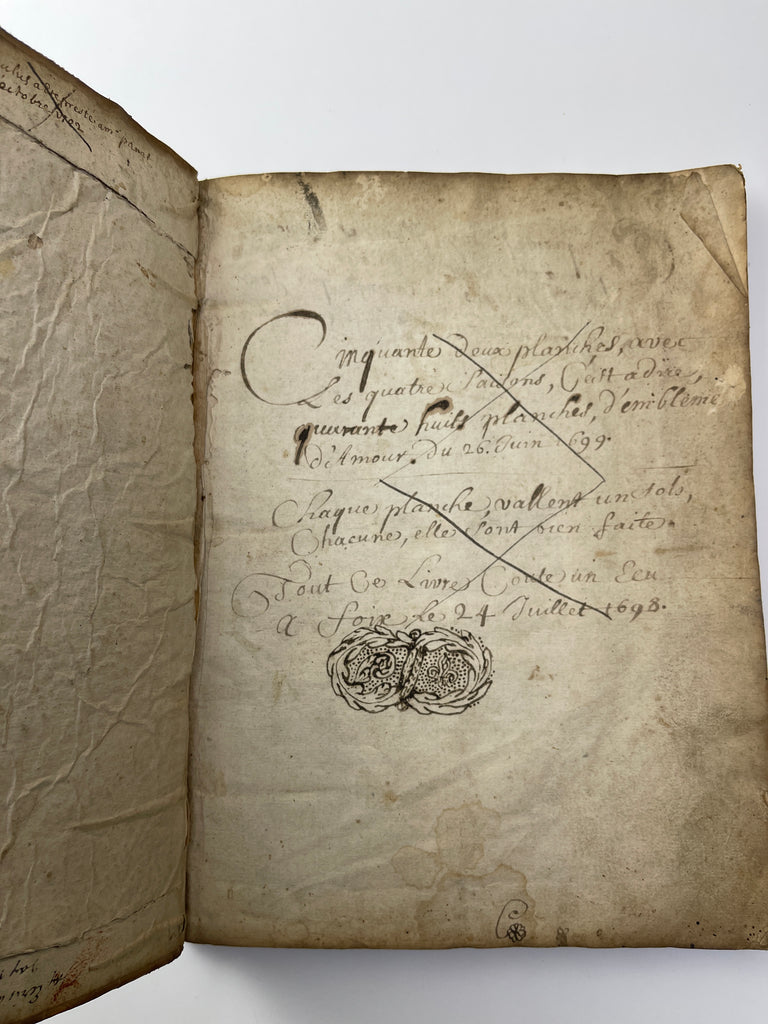 octobre
Cinquante deux planches, avec
Les quatre Saisons, C'est adire,
quarante huit planches, d'emblème
d'Amour. du 26. Juin 1699.
Chaque planche, vallent un sols,
Chacune, elle sont bien faite.
Tout Ce Livre Coute un Ecu
A foix Le 24 Juillet 1698.